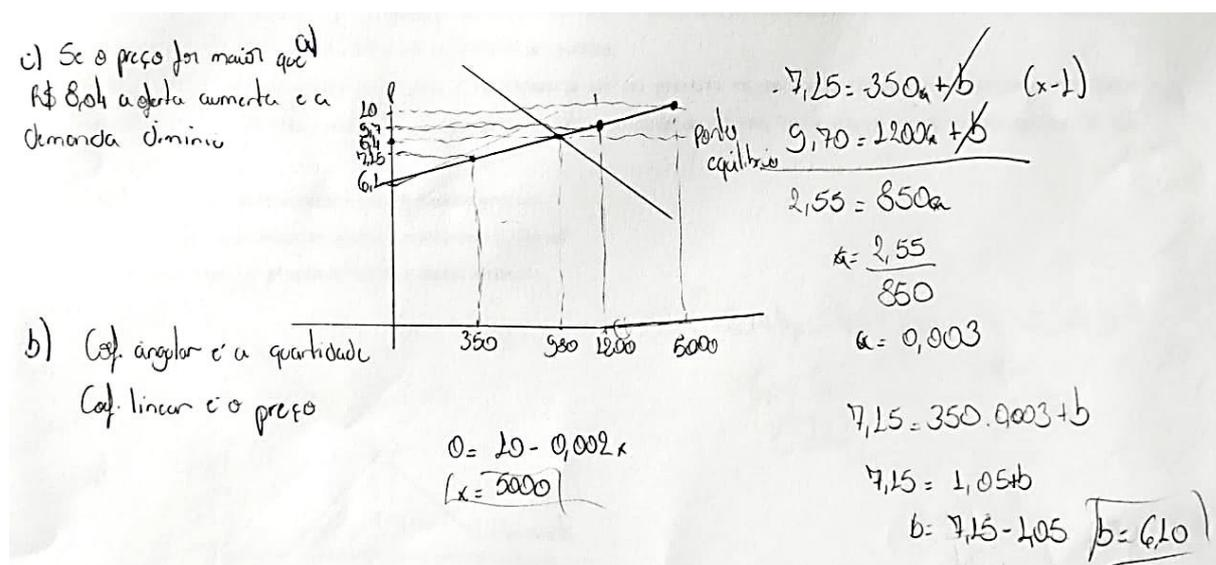 c) Se o preço for maior que
R$ 8,04 a oferta aumenta e a
demanda diminui
a)
P
10
9,7
8,4
7,15
6,1
350
980
1200
5000
ponto
equilíbrio
b) Coef. angular é a quantidade
Coef. linear é o preço
0 = 10 - 0,002x
x = 5000
7,15 = 350a + b (x-1)
9,70 = 1200a + b
2,55 = 850a
a = 2,55
850
a = 0,003
7,15 = 350 . 0,003 + b
7,15 = 1,05 + b
b = 7,15 - 1,05 b = 6,10